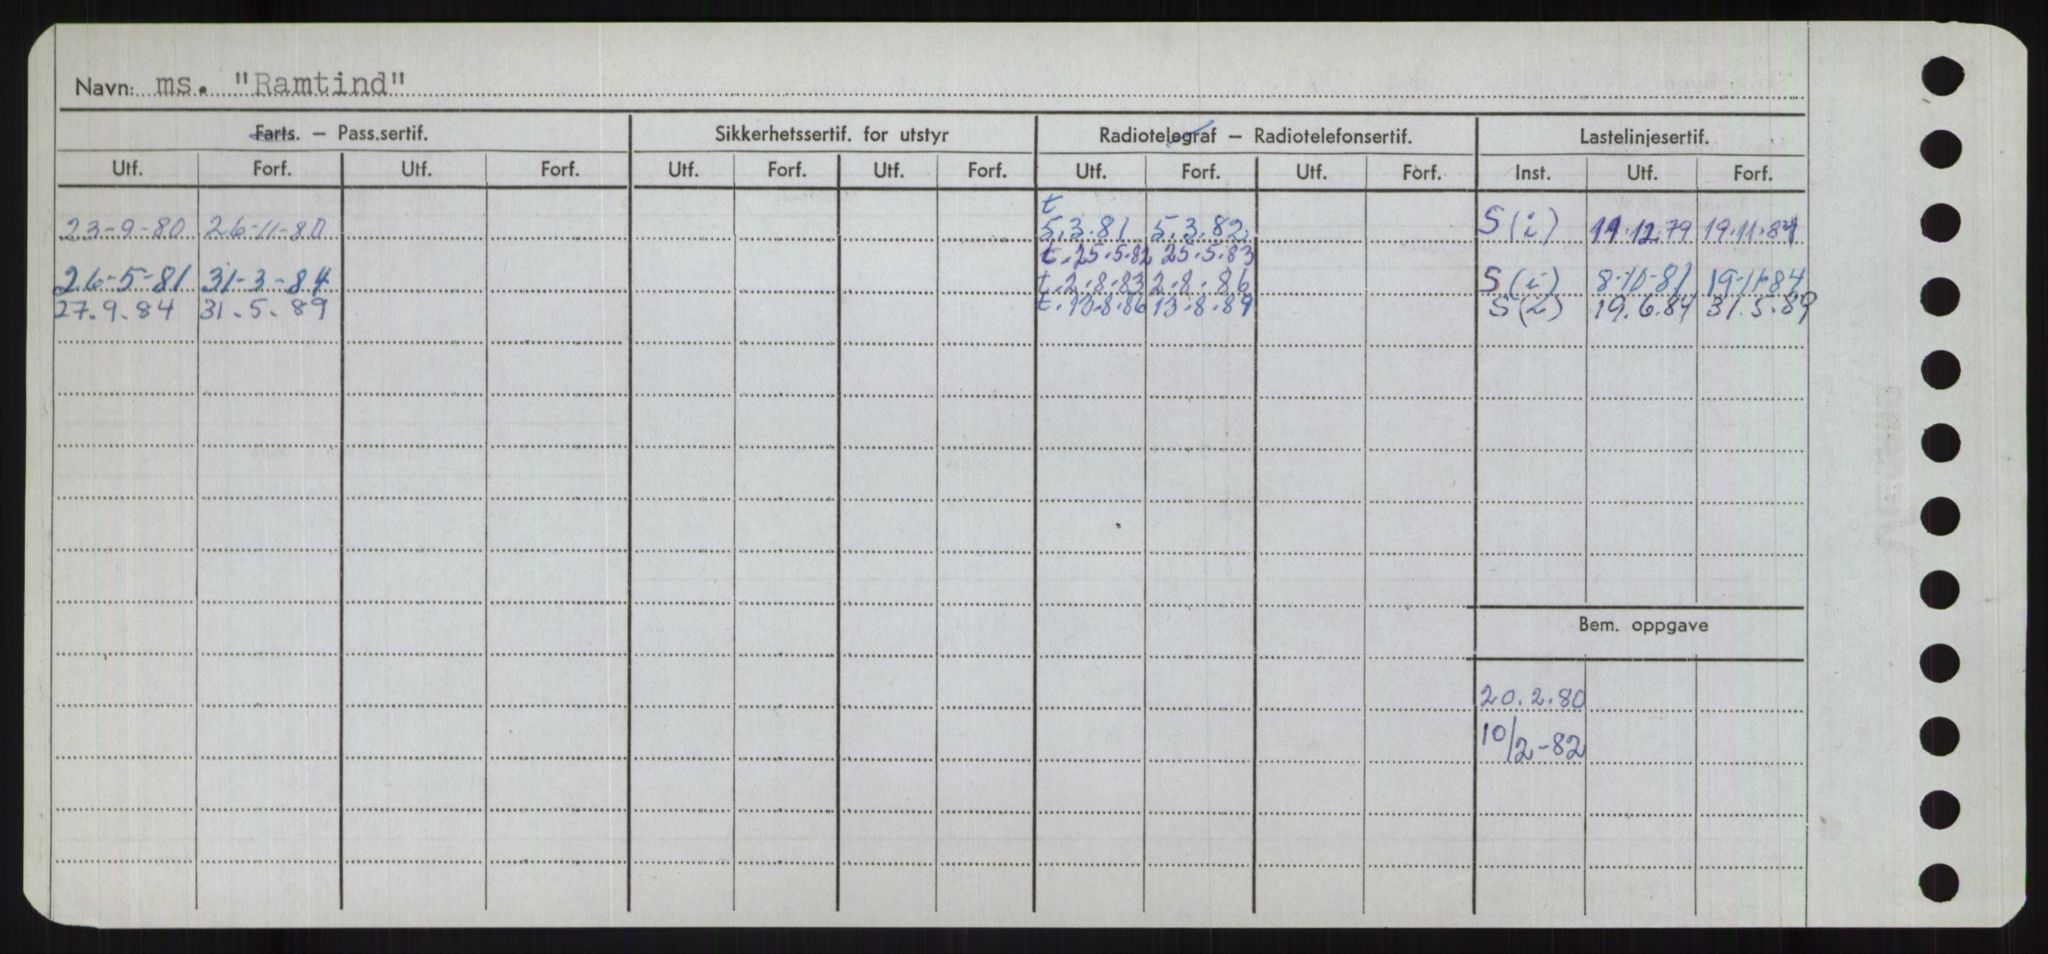 Navn: ms. "Ramtind"
Farts. – Pass.sertif. Sikkerhetssertif. for utstyr Radiotelegraf – Radiotelefonsertif. Lastelinjesertif.
Utf. Forf. Utf. Forf. Utf. Forf. Utf. Forf. Utf. Forf. Utf. Forf. Inst. Utf. Forf.
t
23-9-80 26-11-80 5.3.81 5.3.82 S(i) 19.12.79 19.11.84
t.25.5.82 25.5.83
26-5-81 31-3-84 t.2.8.83 2.8.86 S(i) 8-10-81 19-11-84
27.9.84 31.5.89 t.13.8.86 13.8.89 S(i) 19.6.84 31.5.89
Bem. oppgave
20.2.80
10/2-82